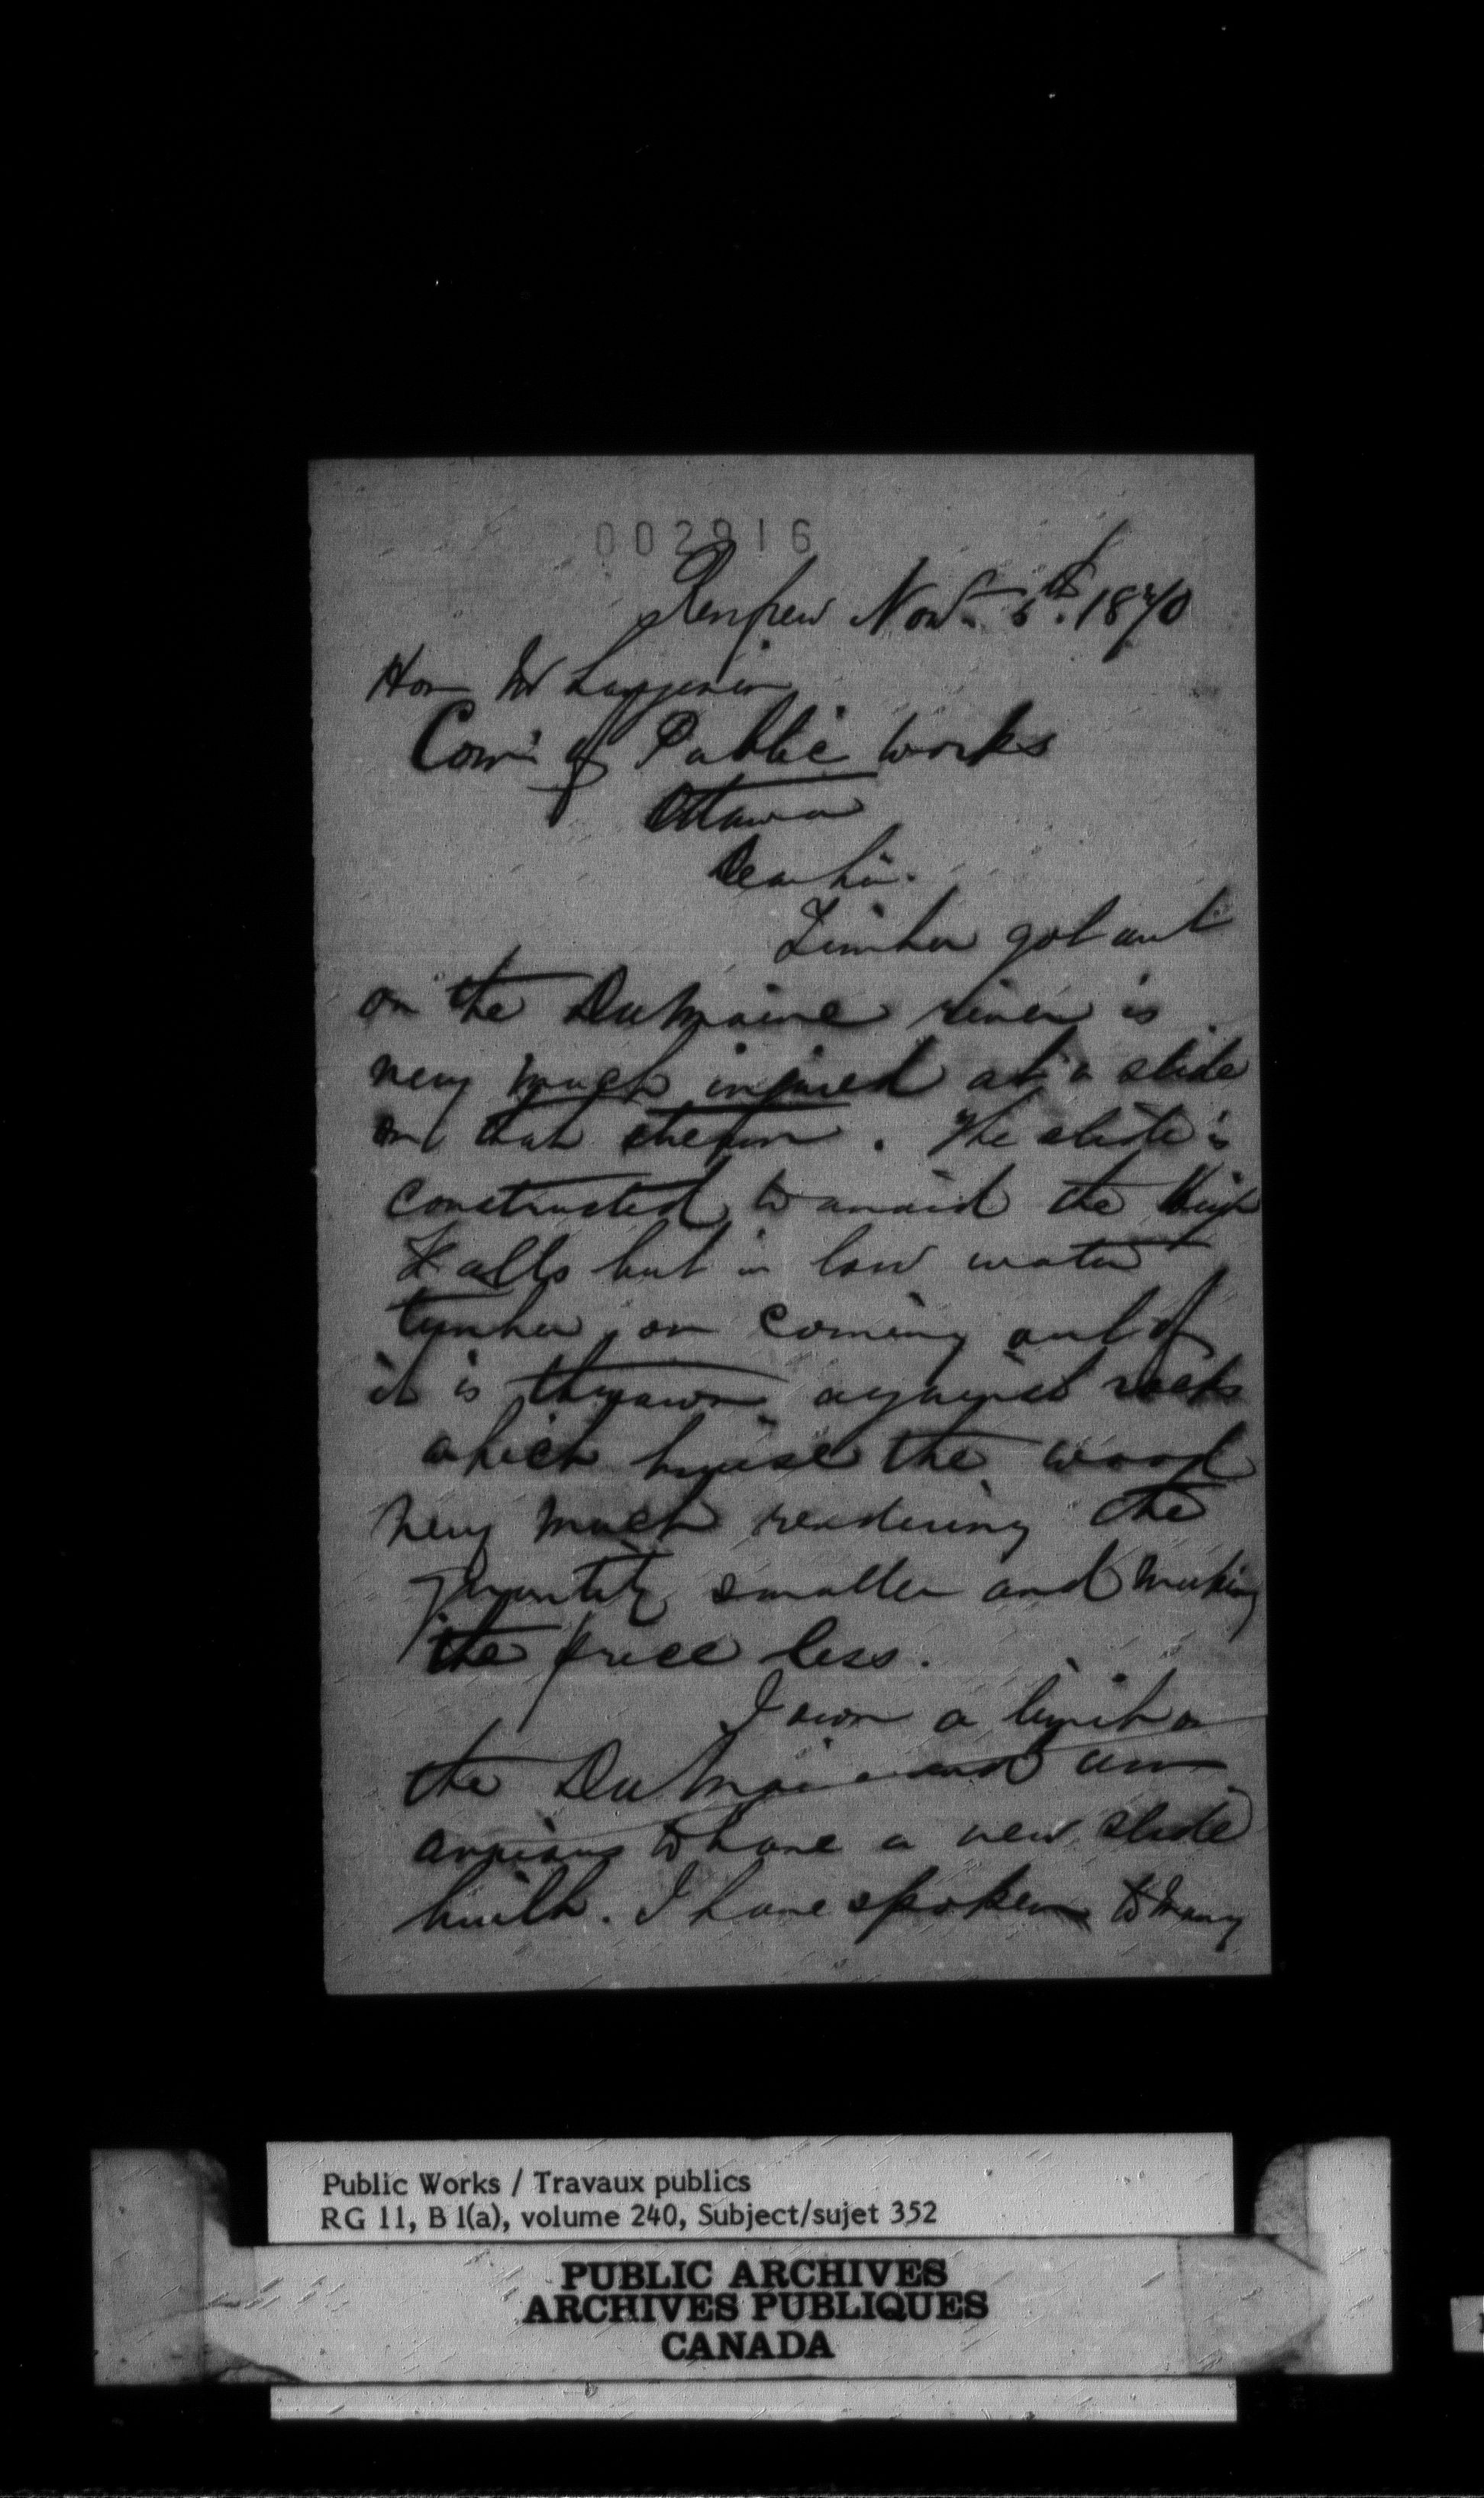 002916
Renfrew Novr 5th. 1870
Hon Mr Langevin
Com'r of Public Works
Ottawa
Dear Sir.
Timber got out
on the DuMoine river is
very much injured at a slide
on that stream. The slide is
constructed to avoid the High
Falls but in low water
timber on coming out of
it is thrown against rocks
which bruise the wood
very much rendering the
quantity smaller and making
the price less.
I own a limit on
the DuMoine and am
anxious to have a new slide
built. I have spoken to many
Public Works / Travaux publics
RG 11, B 1(a), volume 240, Subject/sujet 352
PUBLIC ARCHIVES
ARCHIVES PUBLIQUES
CANADA